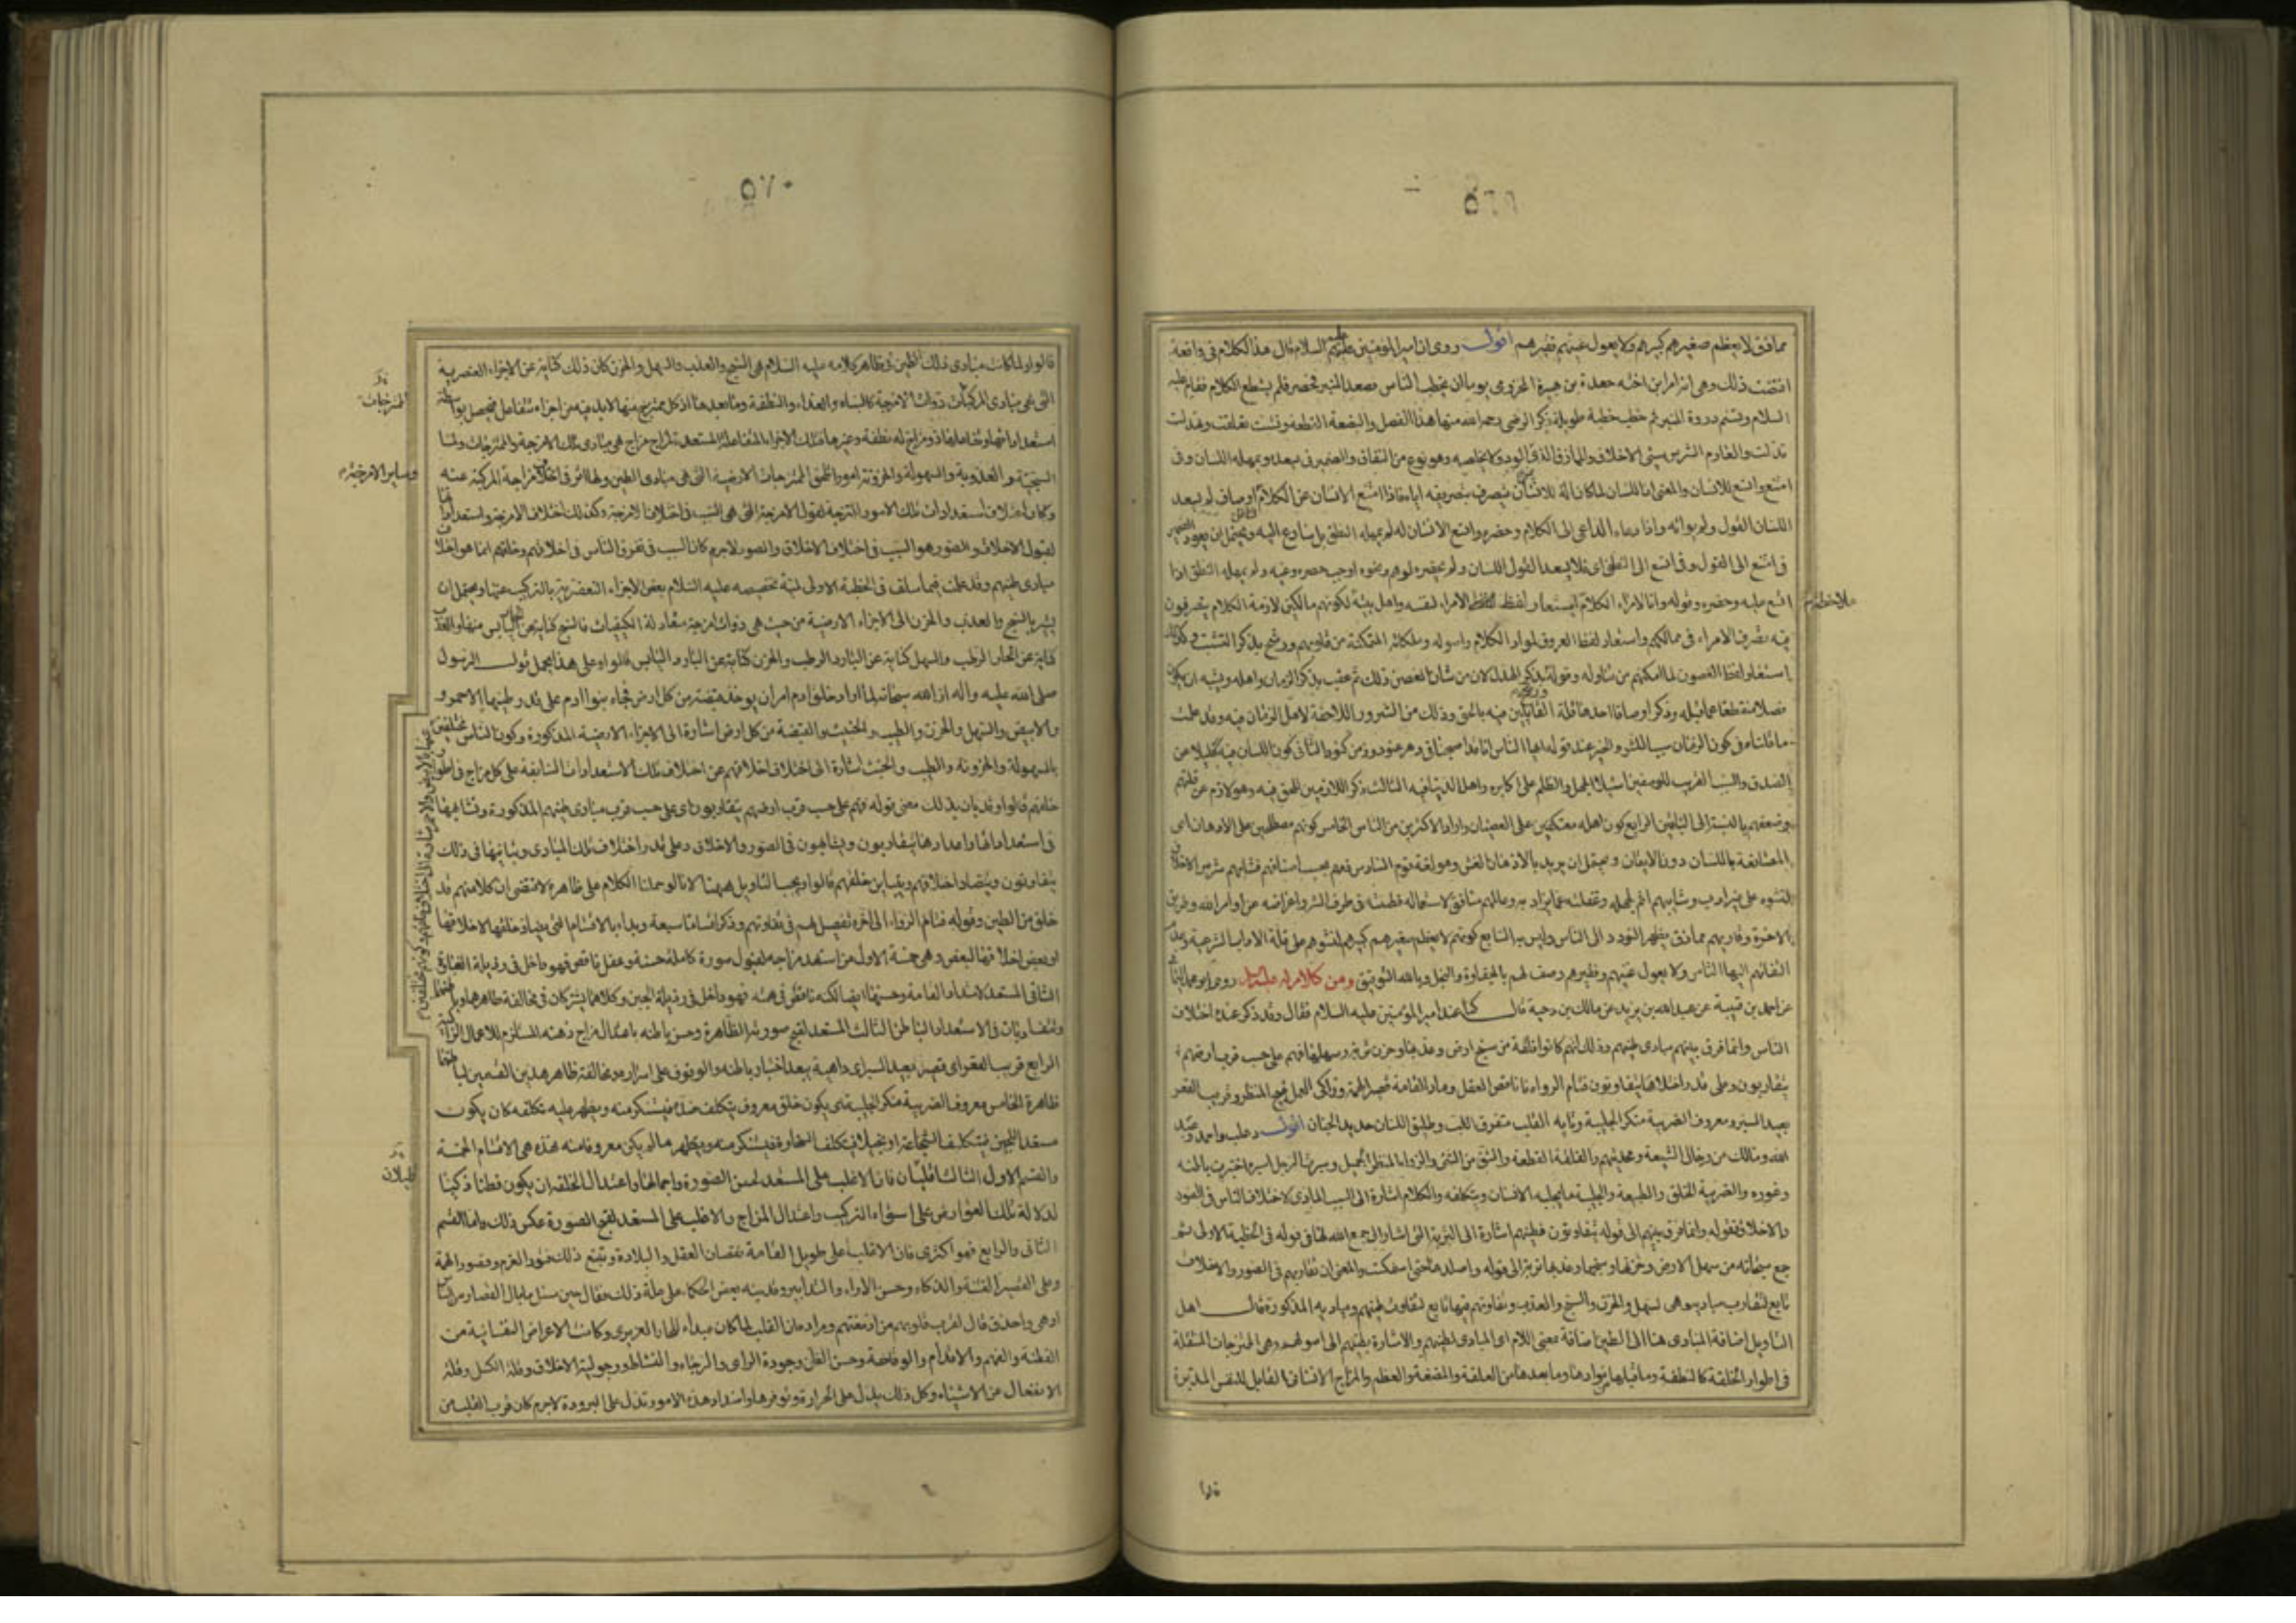 ٥٦٩
مماذق لا يعظم صغيرهم كبيرهم ولا يعول غنيهم فقيرهم اقول روى ان امير المومنين عليه السلام قال هذا الكلام فى واقعة
اقتضت ذلك وهى انه امر ابن اخته جعدة بن هبيرة المخزومى يوما ان يخطب الناس فصعد المنبر فحصر فلم يستطع الكلام فقام عليه
السلام وتسنم ذروة المنبر ثم خطب خطبة طويلة ذكر الرضى رحمه الله منها هذا الفصل والبضعة القطعة وتنشبت تعلقت وتهدلت
تدلت والعارم الشرس سيئ الاخلاق والمماذق الذى الود ولا يخلصه وهو نوع من النفاق والضمير فى يسعده ويمهله اللسان وفى
امتنع واتسع للانسان والمعنى ان اللسان لما كان الة للانسان يتصرف بتصريفه اياه فاذا امتنع الانسان عن الكلام لم يسعد
اللسان القول ولم يواته واذا دعاه الداعى الى الكلام وحضره واتسع الانسان له لم يمهله النطق بل يسارع اليه ويحتمل ان يعود الضمير
فى امتنع الى القول وفى اتسع الى النطق اى فلا يسعد القول اللسان
اتسع عليه وحضره وقوله وانا لامراء الكلام استعار لفظ الامراء لنفسه واهل بيته لكونهم مالكين لازمة الكلام يتصرفون
فيه تصرف الامراء فى ممالكهم واستعار لفظ العروق لمواد الكلام واصوله وملكاته المتمكنة من قلوبهم ورشح بذكر التنشب وكذلك
استعار لفظ الغصون لما امكنهم من تناوله وقوله بذكر التهدل لان من شان الغصن ذلك ثم عقب بذكر الزمان واهله
ما قلناه فى كون الزمان سببا للشر والخير عند قوله ايها الناس انا قد اصبحنا فى دهر عنود وزمن كنود الثانى كون اللسان فيه كليلا عن
الصدق والسبب القريب للوصفين استيلاء الجهل والظلم على اكابره واهل الدنيا فيه الثالث ذكر اللازمين للحق فيه وهو لازم عن قلتهم
وضعفهم بالنسبة الى الباقين الرابع كون اهله معتكفين على العصيان واراد الاكثرين من الناس الخامس كونهم مصطلحين على الادهان اى
المصانعة باللسان دون الايمان
الاخرة وقاريهم مماذق يظهر التودد الى الناس وليس به السابع كونهم لا يعظم صغيرهم كبيرهم لنشوهم على قلة الاداب الشرعية وعدم
التفاتهم اليها الناس ولا يعول غنيهم وفقيرهم وصف لهم بالجفاوة والبخل وبالله التوفيق ومن كلام له عليه السلام روى ابو محمد اليمانى
عن احمد بن قتيبة عن عبد الله بن يزيد عن مالك بن دحية قال كنا عند امير المومنين عليه السلام فقال وقد ذكر عنده اختلاف
الناس وانما فرق بينهم مبادى طينهم وذلك انهم كانوا فلقة من سبخ ارض وعذبها وحزن تربة وسهلها فهم على حسب قرب ارضهم
يتقاربون وعلى قدر اختلافها يتفاوتون فتام الرواء ناقص العقل وماد القامة قصير الهمة وزاكى العمل قبيح المنظر وقريب القعر
بعيد السبر ومعروف الضريبة منكر الجليبة وتايه القلب متفرق اللب وطليق اللسان حديد الجنان اقول ذعلب واحمد وعبد
الله ومالك من رجال الشيعة ومحدثيهم والفلقة القطعة والشق من الشى والرواء المنظر الجميل وسبرت الرجل اسبره اختبرت باطنه
وغوره والضريبة الخلق والطبيعة والجليبة ما يجلبه الانسان ويتكلفه والكلام اشارة الى السبب المادى لاختلاف الناس فى الصور
والاخلاق فقوله وانما فرق بينهم الى قوله يتفاوتون فطينهم اشارة الى التربة التى اشار الى جمع الله لها فى قوله فى الخطبة الاولى ثم
جمع سبحانه من سهل الارض وحزنها وسبخها وعذبها تربة الى قوله واصلدها حتى استمسكت والمعنى ان تقاربهم فى الصور والاخلاق
تابع لتقارب طينهم وتقارب مباديه وهى السهل والحزن والسبخ والعذب وتفاوتهم فيها تابع لتفاوت طينهم ومباديه المذكورة قال اهل
التاويل اضافة المبادى هنا الى الطين اضافة بمعنى اللام اى المبادى لطينهم والاشارة بطينهم الى اصولهم وهى الممتزجات المنتقلة
فى اطوار الخلقة كالنطفة وما قبلها من موادها وما بعدها من العلقة والمضغة والعظم والمزاج الانسانى القابل للنفس المدبرة
قالوا
٥٧٠
قالوا ولما كانت مبادى ذلك الطين فى ظاهر كلامه عليه السلام هى السبخ والعذب والسهل والحزن كان ذلك كناية عن الاجزاء العنصرية
التى هى مبادى المركبات ذوات الامزجة كالنبات والغذاء والنطفة وما بعدها اذ كل ممتزج منها لا بد فيه من اجزاء تتفاعل فيحصل بواسطة
الممتزجات
السبخية والعذوبة والسهولة والحزونة امورا تلحق الممتزجات الارضية التى هى مبادى الطين ولها اثر فى اختلاف امزجة المركبة عنه
وساير الامزجة
لقبول الاخلاق والصور هو السبب فى اختلاف الاخلاق والصور لا جرم كان السبب فى تفرق الناس فى اخلاقهم وخلقهم انما هو اختلاف
مبادى طينهم وقد علمت فيما سلف فى الخطبة الاولى لمية تخصيصه عليه السلام بعض الاجزاء العنصرية بالتركيب عنها ويحتمل ان
يشير بالسبخ والعذب والحزن الى الاجزاء الارضية من حيث هى ذوات امزجة متعادلة الكيفيات فالسبخ كناية عن الحار اليابس منها والعذب
كناية عن الحار الرطب والسهل كناية عن البارد الرطب والحزن كناية عن البارد اليابس قالوا وعلى هذا يحمل قول الرسول
صلى الله عليه واله ان الله سبحانه لما اراد خلق ادم امر ان يوخذ قبضة من كل ارض فجاء بنو ادم على قدر طينها الاحمر و
والابيض والسهل والحزن والطيب والخبيث والقبضة من كل ارض اشارة الى الاجزاء الارضية المذكورة وكون الناس مختلفين
بالسهولة والحزونة والطيب والخبث اشارة الى اختلاف اخلاقهم عن اختلاف تلك الاستعدادات السابقة على كل مزاج فى اطوار
خلقهم قالوا وقد بان بذلك معنى قوله فهم على حسب قرب ارضهم يتقاربون اى على حسب قرب مبادى طينهم المذكورة وتشابهها
فى استعداداتها واعدادها يتقاربون ويتشابهون فى الصور والاخلاق وعلى قدر اختلاف تلك المبادى وتباينها فى ذلك
يتفاوتون ويتضاد اخلاقهم ويتباين خلقهم قالوا ويجب التاويل ههنا لانا لو حملنا الكلام على ظاهره لاقتضى ان كلا منهم قد
خلق من الطين وقوله فتام الرواء الى اخره تفصيل لهم فى تفاوتهم وذكر اقساما سبعة وبداء بالاقسام التى يضاد خلقها لاخلاقها
او بعض اخلاقها لبعض وهى خمسة الاول من استعد مزاجه لقبول صورة كاملة حسنة وعقل ناقص فهو داخل فى رذيلة الغباوة
الثانى المستعد لامتداد القامة وحسنها ايضا لكنه ناقص فى همته فهو داخل فى رذيلة الجبن وكلاهما يشتركان فى مخالفة ظاهرهما وباطنهما
ويتفاوتان فى الاستعداد الباطن الثالث المستعد لقبح صورته الظاهرة وحسن باطنه باعتدال مزاج ذهنه المستلزم للاعمال الزاكية
الرابع قريب القعر اى قصير بعيد السبر اى داهية يبعد اختبار باطنه والوقوف على اسراره ومخالفة ظاهر هذين القسمين لباطنهما
ظاهرة الخامس معروف الضريبة منكر الجليبة اى يكون خلق معروف يتكلف ضده فيستنكر منه ويظهر عليه تكلفه كان يكون
مستعدا للجبن فيتكلف الشجاعة او بخيلا فيتكلف السخاوة فيستنكر منه ويظهر ما لم يكن معروفا منه فهذه هى الاقسام الخمسة
والقسم الاول الثالث اقليان فان الاغلب على المستعد لحسن الصورة وجمالها واعتدال الخلقة ان يكون فطنا ذكيا
قليلان
لدلالة تلك العوارض على استواء التركيب واعتدال المزاج والاغلب على المستعد لقبح الصورة عكس ذلك واما القسم
الثانى والرابع فهو اكثرى فان الاغلب على طويل القامة نقصان العقل والبلادة ويتبع ذلك فتور العزم وقصور الهمة
وعلى القصير الفطنة والذكاء وحسن الاراء والتدابير وقد نبه بعض الحكماء على علة ذلك فقال حين سئل ما بال القصار من الناس
ادهى واحذق قال لقرب قلوبهم من ادمغتهم ومراده ان القلب لما كان مبداء للحار الغريزى وكانت الاعراض النفسانية من
الفطنة والفهم والاقدام والوقاحة وحسن الظن وجودة الراى والرجاء والنشاط ورجولية الاخلاق وقلة الكسل وقلة
الانفعال عن الاشياء وكل ذلك يدل على الحرارة وتوفرها واضداد هذه الامور تدل على البرودة لا جرم كان قرب القلب من